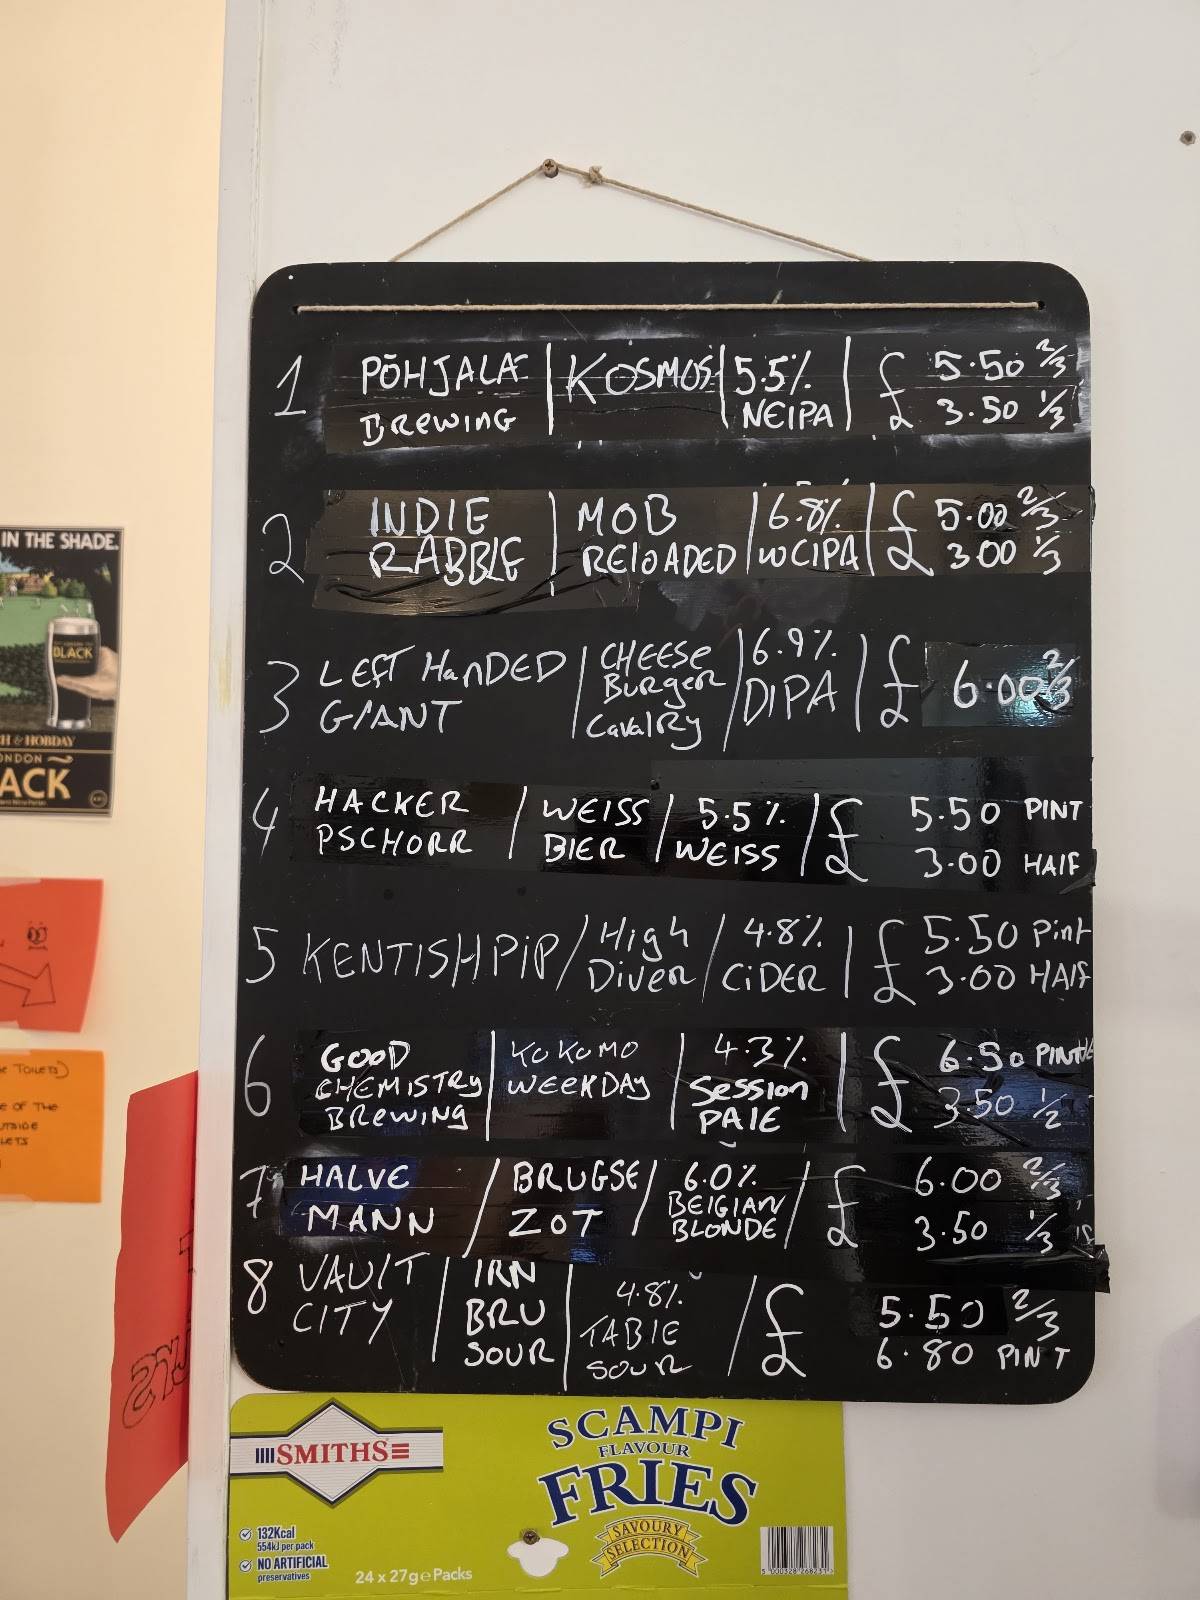 1 PÕHJALA | KOSMOS | 5.5% | £ 5.50 2/3
BREWING NEIPA £ 3.50 1/3
2 INDIE | MOB | 6.8% | £ 5.00 2/3
RABBLE RELOADED WCIPA £ 3.00 1/3
3 LEFT HANDED | CHEESE | 6.9% | £ 6.00 2/3
GIANT BURGER DIPA
CAVALRY
4 HACKER / WEISS / 5.5% / £ 5.50 PINT
PSCHORR BIER WEISS 3.00 HALF
5 KENTISH PIP / High / 4.8% | £ 5.50 Pint
Diver CIDER 3.00 HALF
6 GOOD | KOKOMO | 4.3% | £ 6.50 PINT
CHEMISTRY WEEKDAY Session £ 3.50 1/2
BREWING PALE
7 HALVE / BRUGSE / 6.0% / £ 6.00 2/3
MANN ZOT BELGIAN 3.50 1/3
BLONDE
8 VAULT | IRN | 4.8% / £ 5.50 2/3
CITY BRU TABLE 6.80 PINT
SOUR SOUR
IN THE SHADE.
BLACK
H & HOBDAY
ONDON
ACK
E TOILETS)
E OF THE
UTSIDE
LETS
SMITHS
SCAMPI
FLAVOUR
FRIES
SAVOURY
SELECTION
132Kcal
554kJ per pack
NO ARTIFICIAL
preservatives
24 x 27g e Packs